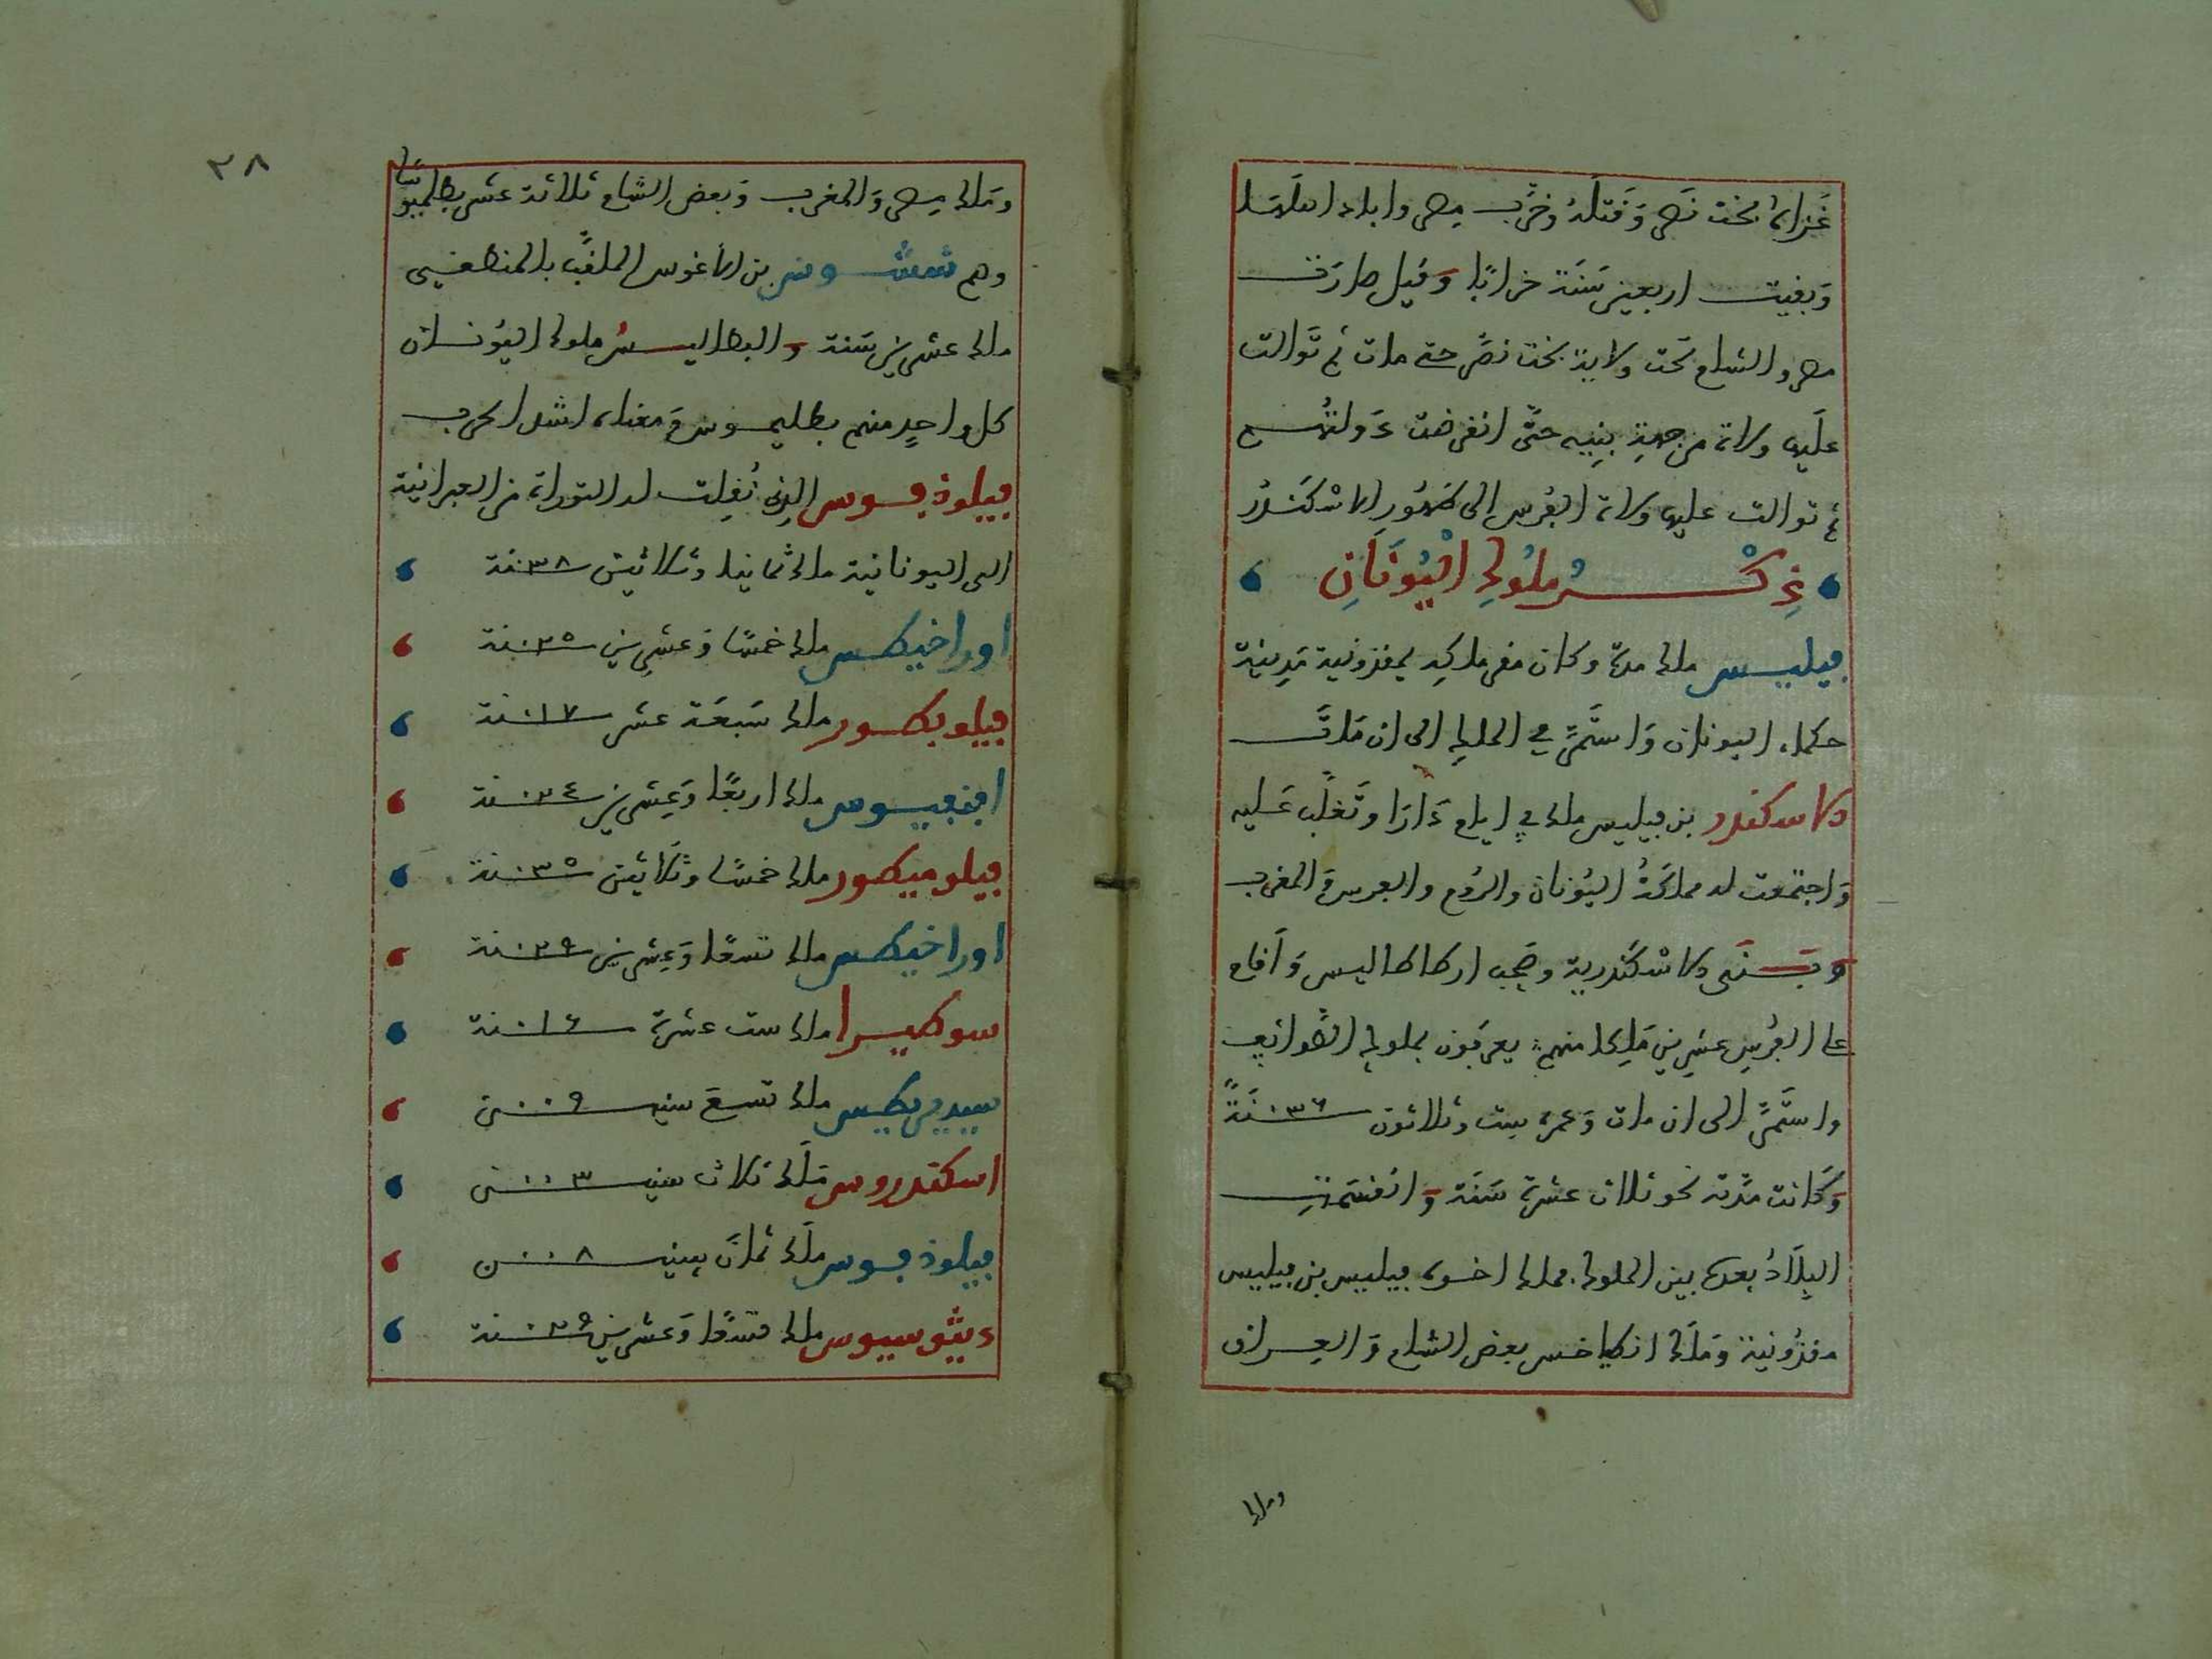 غزاه بخت نصر وقتله وخرب مصر واباد اهلها
وبقيت اربعين سنة خرابا وقيل صارت
مصر والشام تحت ولاية بخت نصر حتى مات ثم توالت
عليها ولاة من جهة بنيه حتى انقرضت دولتهم
ثم توالت عليها ولاة الفرس الى ظهور الاسكندر
ذكر ملوك اليونان
فيليبس ملك مدة وكان مقر ملكه بمقدونية مدينة
حكماء اليونان واستمر في الملك الى ان مات
الاسكندر بن فيليبس ملك في ايام دارا وتغلب عليه
واجتمعت له مملكة اليونان والروم والفرس والمغرب
وبنى الاسكندرية وصحب ارطاطاليس واقام
على الفرس عشرين ملكا منهم يعرفون بملوك الطوائف
واستمر الى ان مات وعمره ست وثلاثون ٠٣٦ سنة
وكانت مدته نحو ثلاث عشرة سنة وانقسمت
البلاد بعده بين الملوك فملك اخوه فيلبس بن فيلبس
مقدونية وملك انطياخس بعض الشام والعراق
وملك
٢٨
وملك مصر والمغرب وبعض الشام ثلاثة عشر بطلميوسا
وهم شوس بن الاغوس الملقب بالمنطقي
ملك عشرين سنة والبطاليس ملوك اليونان
كل واحد منهم بطليموس ومعناه اشد الحرب
فيلوذفوس الذي نقلت له التوراة من العبرانية
الى اليونانية ملك ثمانيا وثلاثين ٠٣٨ سنة
اوراخيطس ملك خمسا وعشرين ٠٢٥ سنة
فيلوبطور ملك سبعة عشر ٠١٧ سنة
افيفيوس ملك اربعا وعشرين ٠٢٤ سنة
فيلوميطور ملك خمسا وثلاثين ٠٣٥ سنة
اوراخيطس ملك تسعا وعشرين ٠٢٩ سنة
سوطيرا ملك ست عشرة ٠١٦ سنة
سيديريطس ملك تسع سنين ٠٠٩ سن
اسكندروس ملك ثلاث سنين ٠٠٣ سن
فيلوذفوس ملك ثمان سنين ٠٠٨ سن
ديثوسيوس ملك تسعا وعشرين ٠٢٩ سنة